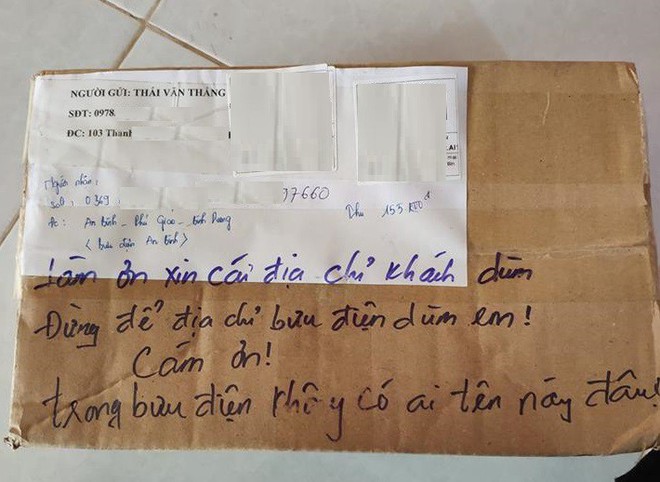 NGƯỜI GỬI: THÁI VĂN THẮNG
SĐT: 0978
ĐC: 103 Thanh
Người nhận:
sđt: 0369 37660
Đc: An Bình - Phú Giáo - Bình Dương
Thu 155.000đ
< bưu điện An Bình >
Làm ơn xin cái địa chỉ khách dùm
Đừng để địa chỉ bưu điện dùm em!
Cám ơn!
trong bưu điện không có ai tên này đâu!